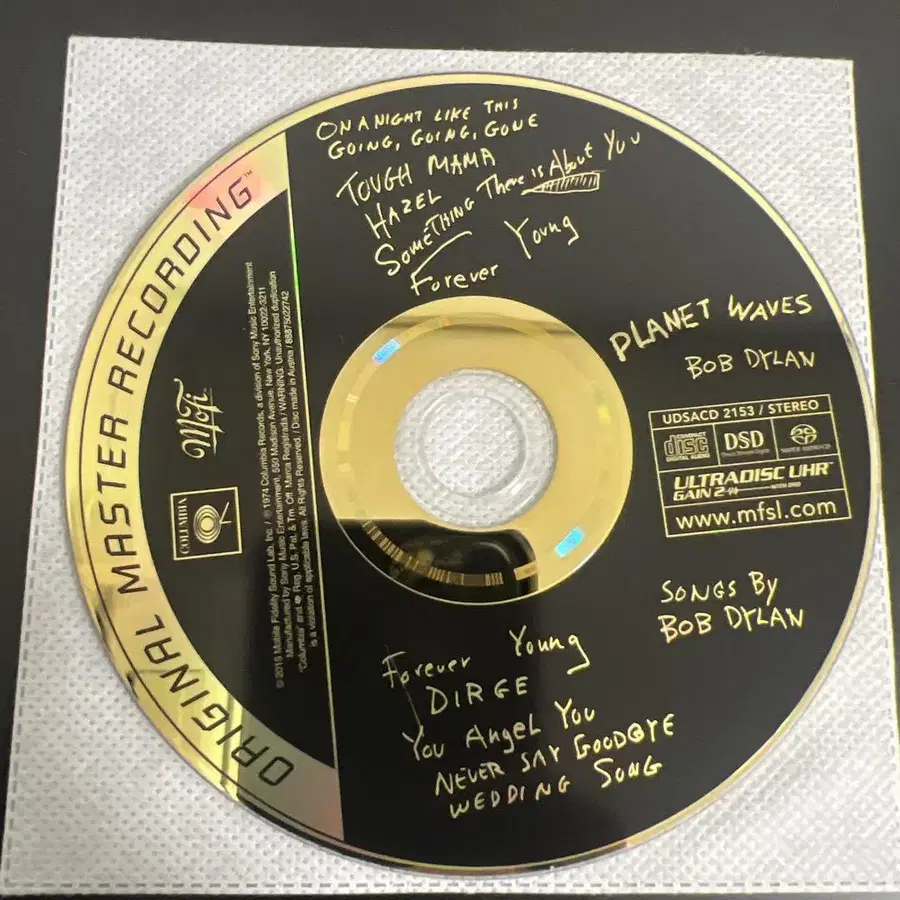 ON A NIGHT LIKE THIS
GOING, GOING, GONE
TOUGH MAMA
HAZEL
SOMETHING There is About You
Forever Young
PLANET WAVES
BOB DYLAN
UDSACD 2153 / STEREO
COMPACT
disc
DIGITAL AUDIO
DSD
Direct Stream Digital
SUPER AUDIO CD
ULTRADISC UHR™
GAIN 2™
www.mfsl.com
SONGS By
BOB DYLAN
Forever Young
DIRGE
You Angel You
NEVER SAY GOODBYE
WEDDING SONG
ORIGINAL MASTER RECORDING™
MoFi
COLUMBIA
© 2015 Mobile Fidelity Sound Lab, Inc. / ℗ 1974 Columbia Records, a division of Sony Music Entertainment
Manufactured by Sony Music Entertainment, 550 Madison Avenue, New York, NY 10022-3211
"Columbia" and Reg. U.S. Pat. & Tm. Off. Marca Registrada / WARNING: Unauthorized duplication
is a violation of applicable laws. All Rights Reserved. / Disc made in Austria / 88875022742